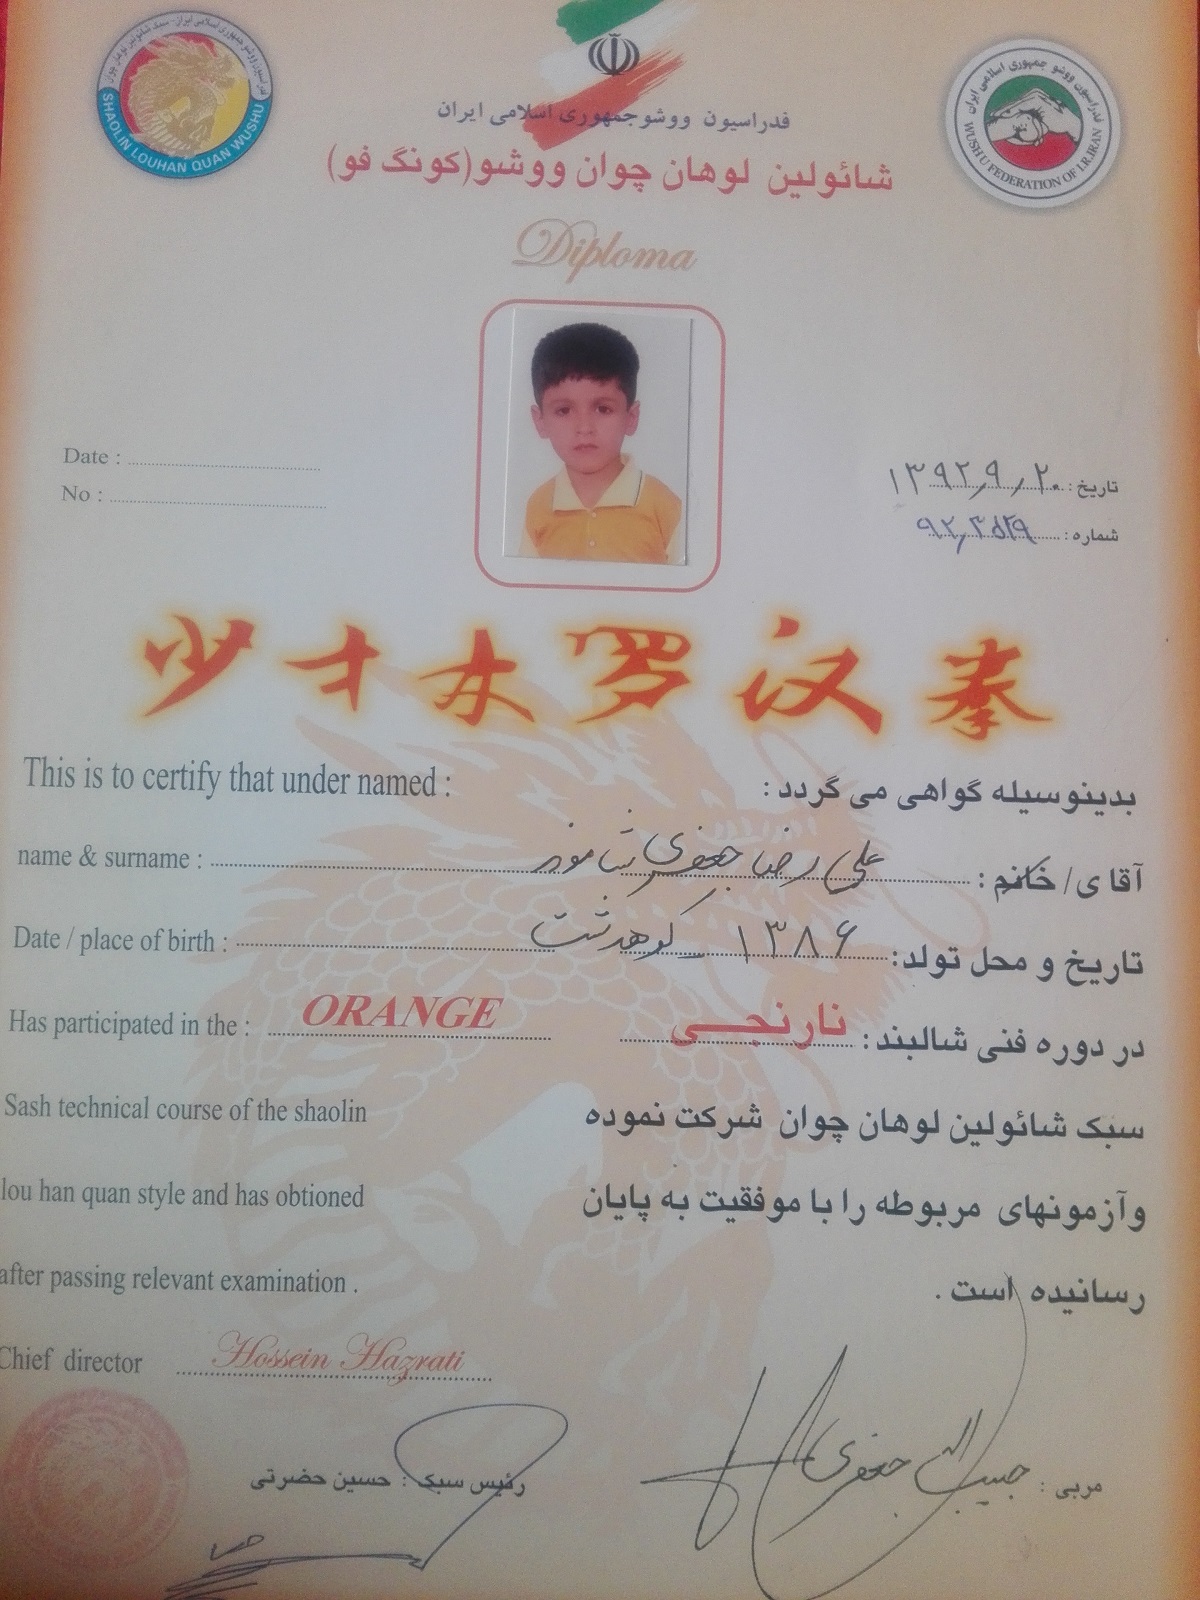 فدراسیون ووشو جمهوری اسلامی ایران - سبک شائولین لوهان چوان
SHAOLIN LOUHAN QUAN WUSHU
فدراسیون ووشو جمهوری اسلامی ایران
WUSHU FEDERATION OF I.R.IRAN
فدراسیون ووشو جمهوری اسلامی ایران
شائولین لوهان چوان ووشو (کونگ فو)
Diploma
Date :
No :
تاریخ : ۱۳۹۲,۹,۲۰
شماره :
少才木罗汉拳
This is to certify that under named :
بدینوسیله گواهی می گردد :
name & surname :
آقای / خانم : علی رضا جعفری
Date / place of birth :
تاریخ و محل تولد: ۱۳۸۶ _ کوهدشت
Has participated in the : ORANGE
در دوره فنی شالبند: نارنجی
Sash technical course of the shaolin
سبک شائولین لوهان چوان شرکت نموده
lou han quan style and has obtioned
وآزمونهای مربوطه را با موفقیت به پایان
after passing relevant examination .
رسانیده است .
Chief director Hossein Hazrati
رئیس سبک : حسین حضرتی
مربی : حبیب الله جعفری